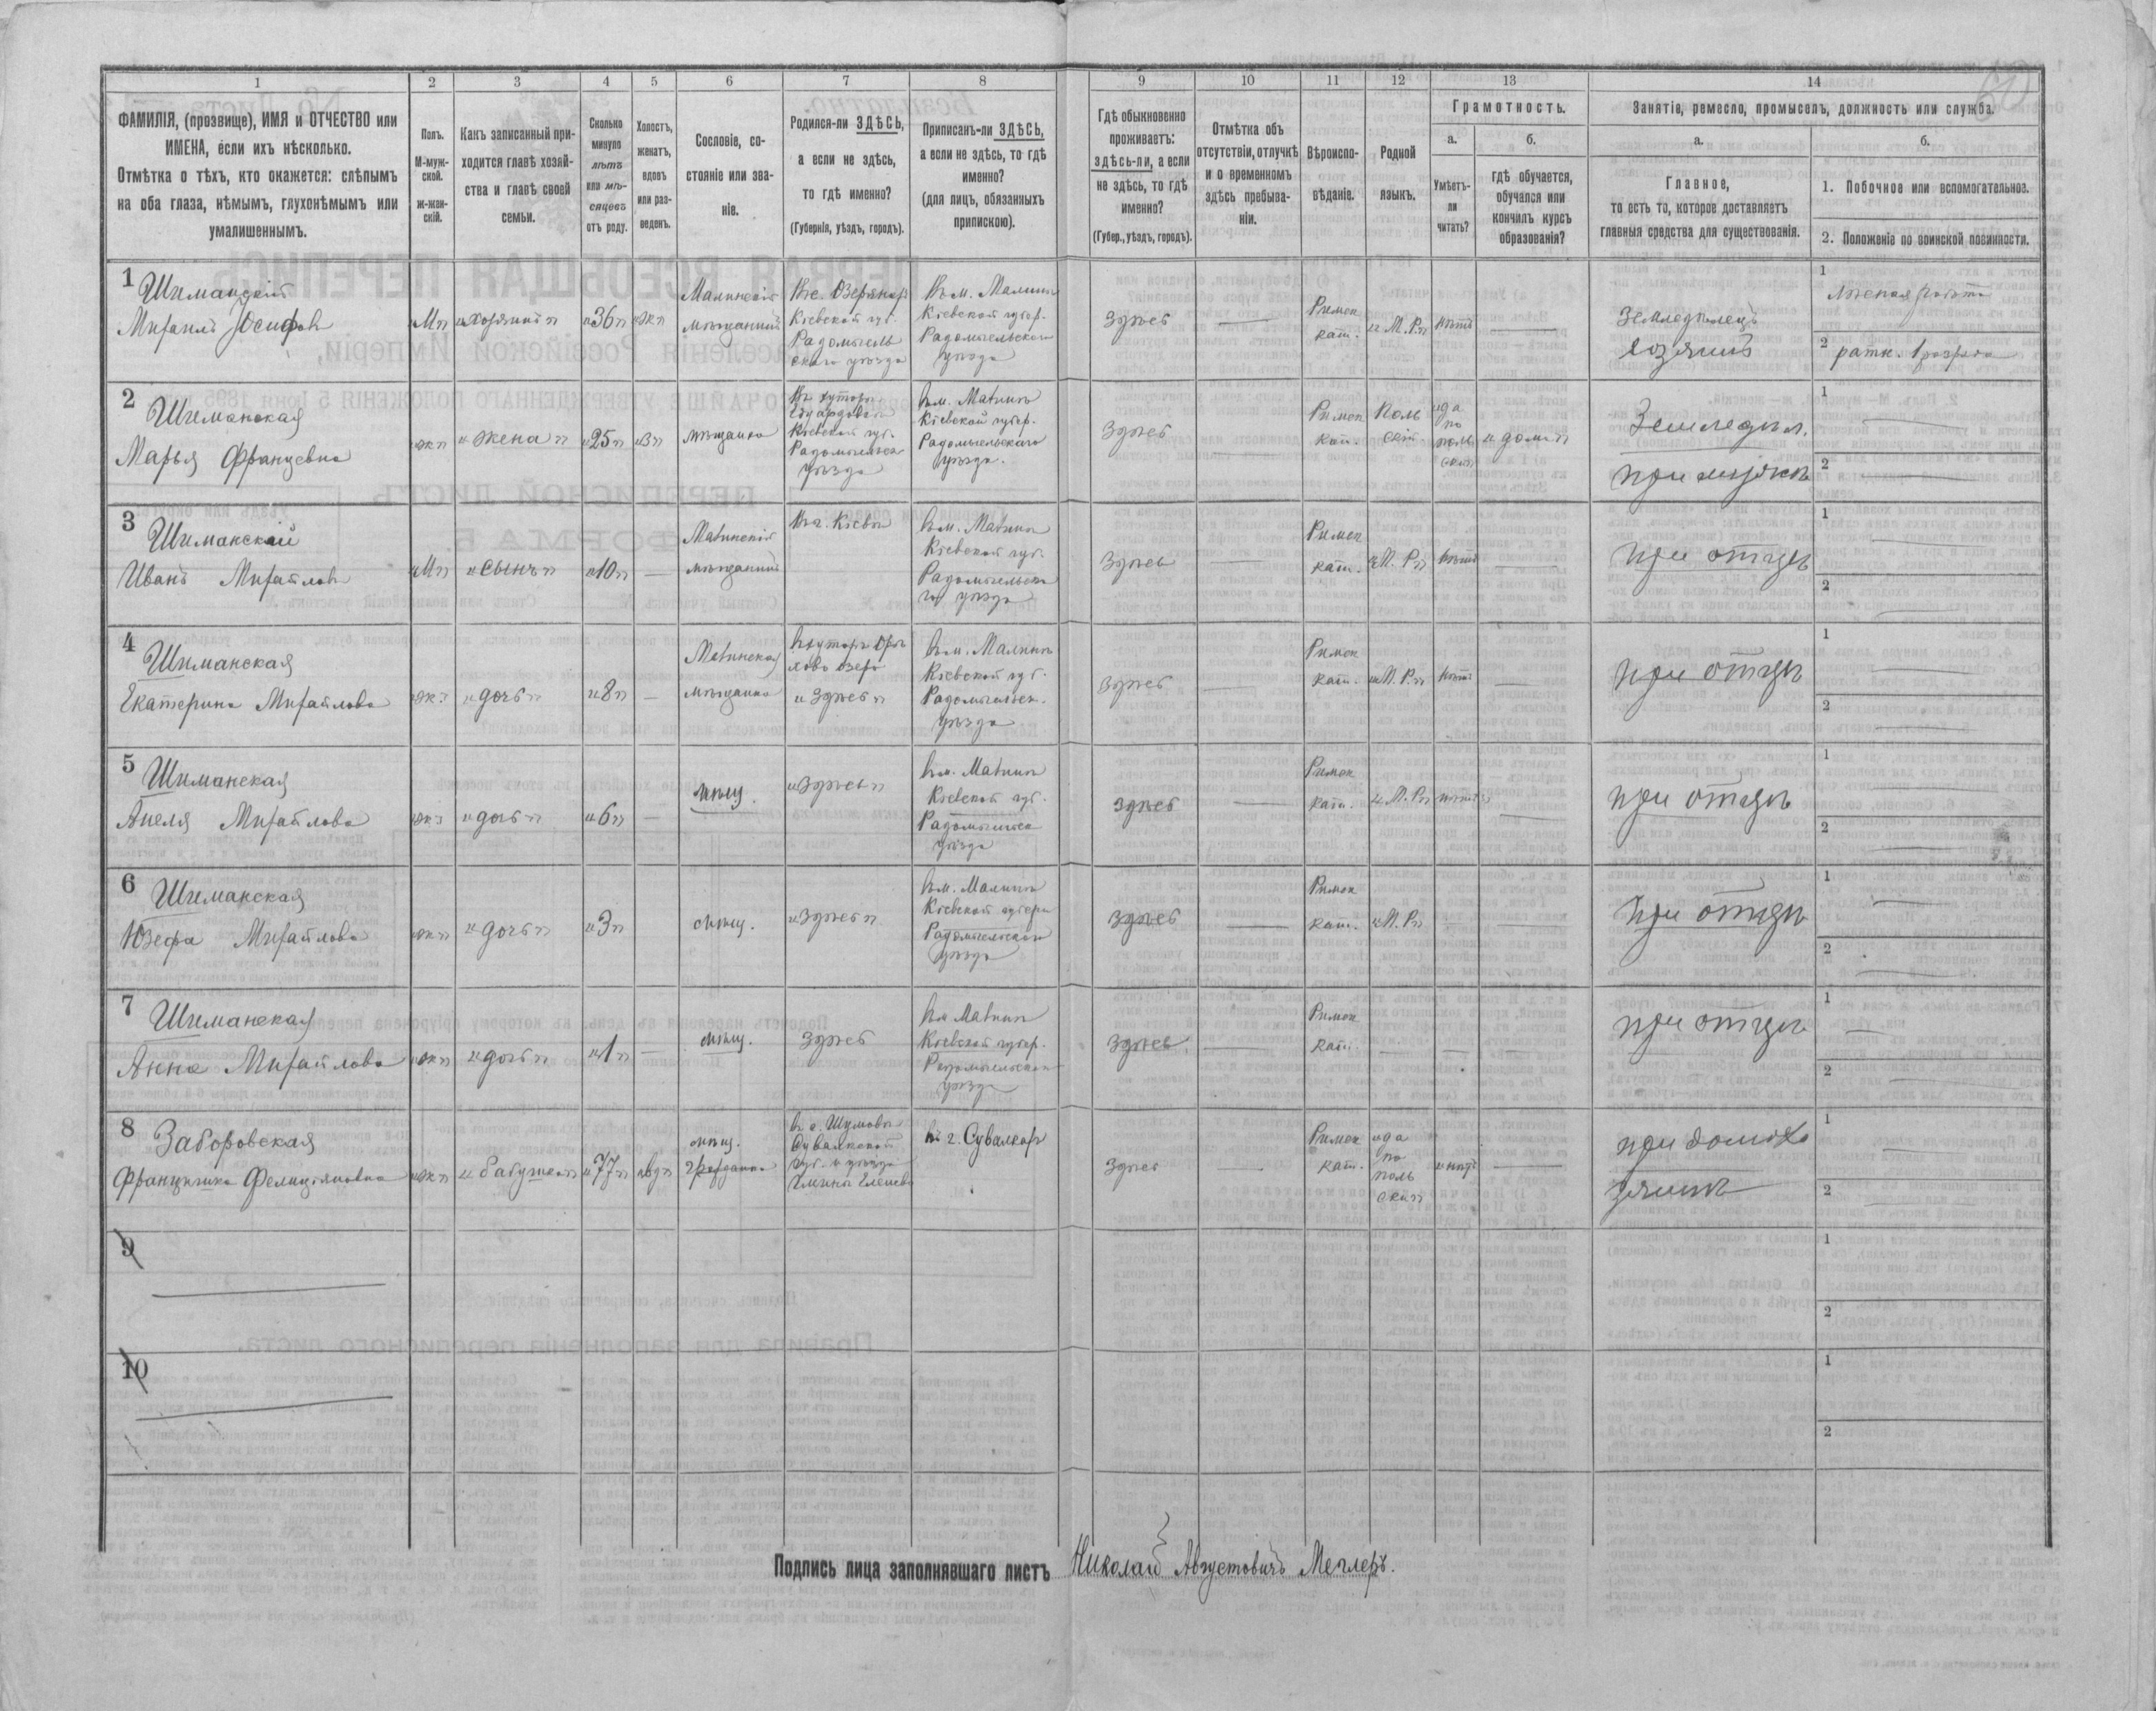 1 2 3 4 5 6 7 8 9 10 11 12 13 14
ФАМИЛІЯ, (прозвище), ИМЯ и ОТЧЕСТВО или
ИМЕНА, если ихъ нѣсколько.
Отмѣтка о тѣхъ, кто окажется: слѣпымъ
на оба глаза, нѣмымъ, глухонѣмымъ или
умалишеннымъ.
Полъ.
М-муж-
ской.
ж-жен-
скій.
Какъ записанный при-
ходится главѣ хозяй-
ства и главѣ своей
семьи.
Сколько
минуло
лѣтъ
или мѣ-
сяцевъ
отъ роду.
Холостъ,
женатъ,
вдовъ
или раз-
веденъ.
Сословіе, со-
стояніе или зва-
ніе.
Родился-ли ЗДѢСЬ,
а если не здѣсь,
то гдѣ именно?
(Губернія, уѣздъ, городъ).
Приписанъ-ли ЗДѢСЬ,
а если не здѣсь, то гдѣ
именно?
(для лицъ, обязанныхъ
припискою).
Гдѣ обыкновенно
проживаетъ:
здѣсь-ли, а если
не здѣсь, то гдѣ
именно?
(Губер., уѣздъ, городъ).
Отмѣтка объ
отсутствіи, отлучкѣ
и о временномъ
здѣсь пребыва-
ніи.
Вѣроиспо-
вѣданіе.
Родной
языкъ.
Грамотность.
а.
Умѣетъ-
ли
читать?
б.
гдѣ обучается,
обучался или
кончилъ курсъ
образованія?
Занятіе, ремесло, промыселъ, должность или служба.
а.
Главное,
то есть то, которое доставляетъ
главныя средства для существованія.
б.
1. Побочное или вспомогательное.
2. Положеніе по воинской повинности.
1
Шиманскій
Михаилъ Іосифовъ
"М"
"хозяинъ"
"36"
"ж"
Малинскій
мѣщанинъ
Кіевской губ.
Радомысль
скаго уѣзда
Въ м. Малинъ
Кіевской губер.
Радомысльскаго
уѣзда
Здѣсь
Римск
кат.
"М. Р."
нѣтъ
Земледѣлецъ
хозяинъ
1
2 ратн. 1 разряда
2
Шиманская
Марья Францевна
"ж"
"жена"
"25"
"з"
мѣщанка
Въ хуторѣ
Кіевской губ.
Радомысльск
уѣзда
въ м. Малинъ
Кіевской губер.
Радомысльскаго
уѣзда.
Здѣсь
Римск
кат.
Поль
скій
"да
по
поль
ски"
"дома"
Земледѣл.
при мужѣ
1
2
3
Шиманскій
Иванъ Михайловъ
"М"
"сынъ"
"10"
Малинскій
мѣщанинъ
Въ г. Кіевѣ
въ м. Малинъ
Кіевской губ.
Радомысльска
го уѣзда
Здѣсь
Римск
кат.
"М. Р."
нѣтъ
при отцѣ
1
2
4
Шиманская
Екатерина Михайлова
"ж"
"дочь"
"8"
Малинская
мѣщанка
"Здѣсь"
въ м. Малинъ
Кіевской губ.
Радомысльск.
уѣзда
Здѣсь
Римск
кат.
"М. Р."
нѣтъ
при отцѣ
1
2
5
Шиманская
Анеля Михайлова
"ж"
"дочь"
"6"
мѣщ.
"Здѣсь"
въ м. Малинъ
Кіевской губ.
Радомысльск
уѣзда
здѣсь
Римск
кат.
"М. Р."
нѣтъ
при отцѣ
1
2
6
Шиманская
Юзефа Михайлова
"ж"
"дочь"
"3"
мѣщ.
"Здѣсь"
въ м. Малинъ
Кіевской губерн
Радомысльскаго
уѣзда
Здѣсь
Римск
кат.
"М. Р."
при отцѣ
1
2
7
Шиманская
Анна Михайлова
"ж"
"дочь"
"1"
мѣщ.
Здѣсь
въ м Малинъ
Кіевской губер.
Радомысльскаго
уѣзда
Здѣсь
Римск
кат.
при отцѣ
1
2
8
Заборовская
Францишка Фелиціяновна
"ж"
"бабушка"
"77"
"вд"
мѣщ.
гражданка
Сувалкской
губ. и уѣзда
въ г. Сувалкахъ
Здѣсь
Римск
кат.
"да
по
поль
ски"
"нѣтъ
при домохо
зяинѣ
1
2
9
1
2
10
1
2
Подпись лица заполнявшаго листъ Николай Августовичъ Меглеръ.